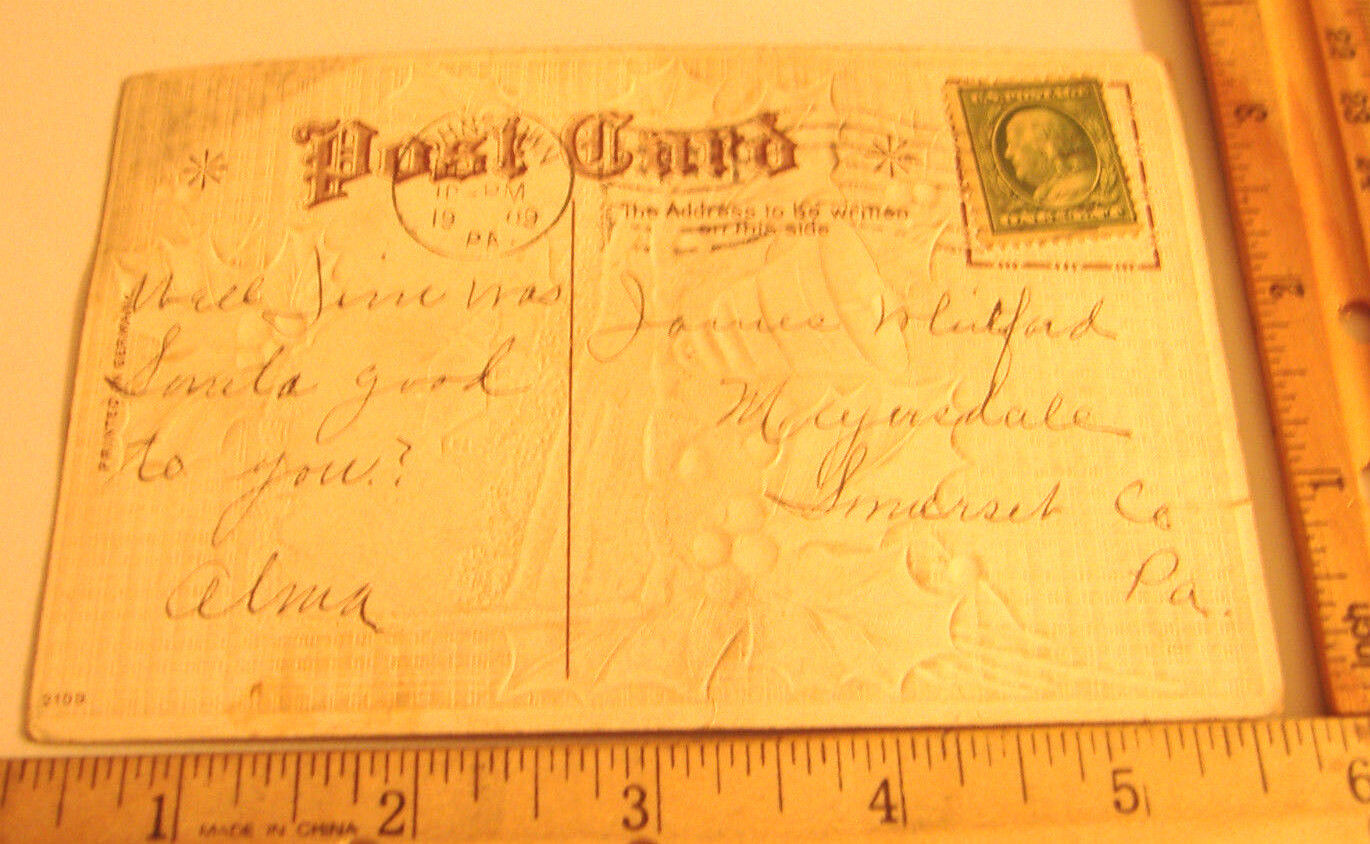 Post Card
PM
19 09
PA.
U.S. POSTAGE
The Address to be written
on this side
PRINTED IN GERMANY
Well Jim was
Santa good
to you?
Alma
James Whitford
Meyersdale
Somerset Co
Pa.
9109
1 2 3 4 5 6
MADE IN CHINA
3
2
1